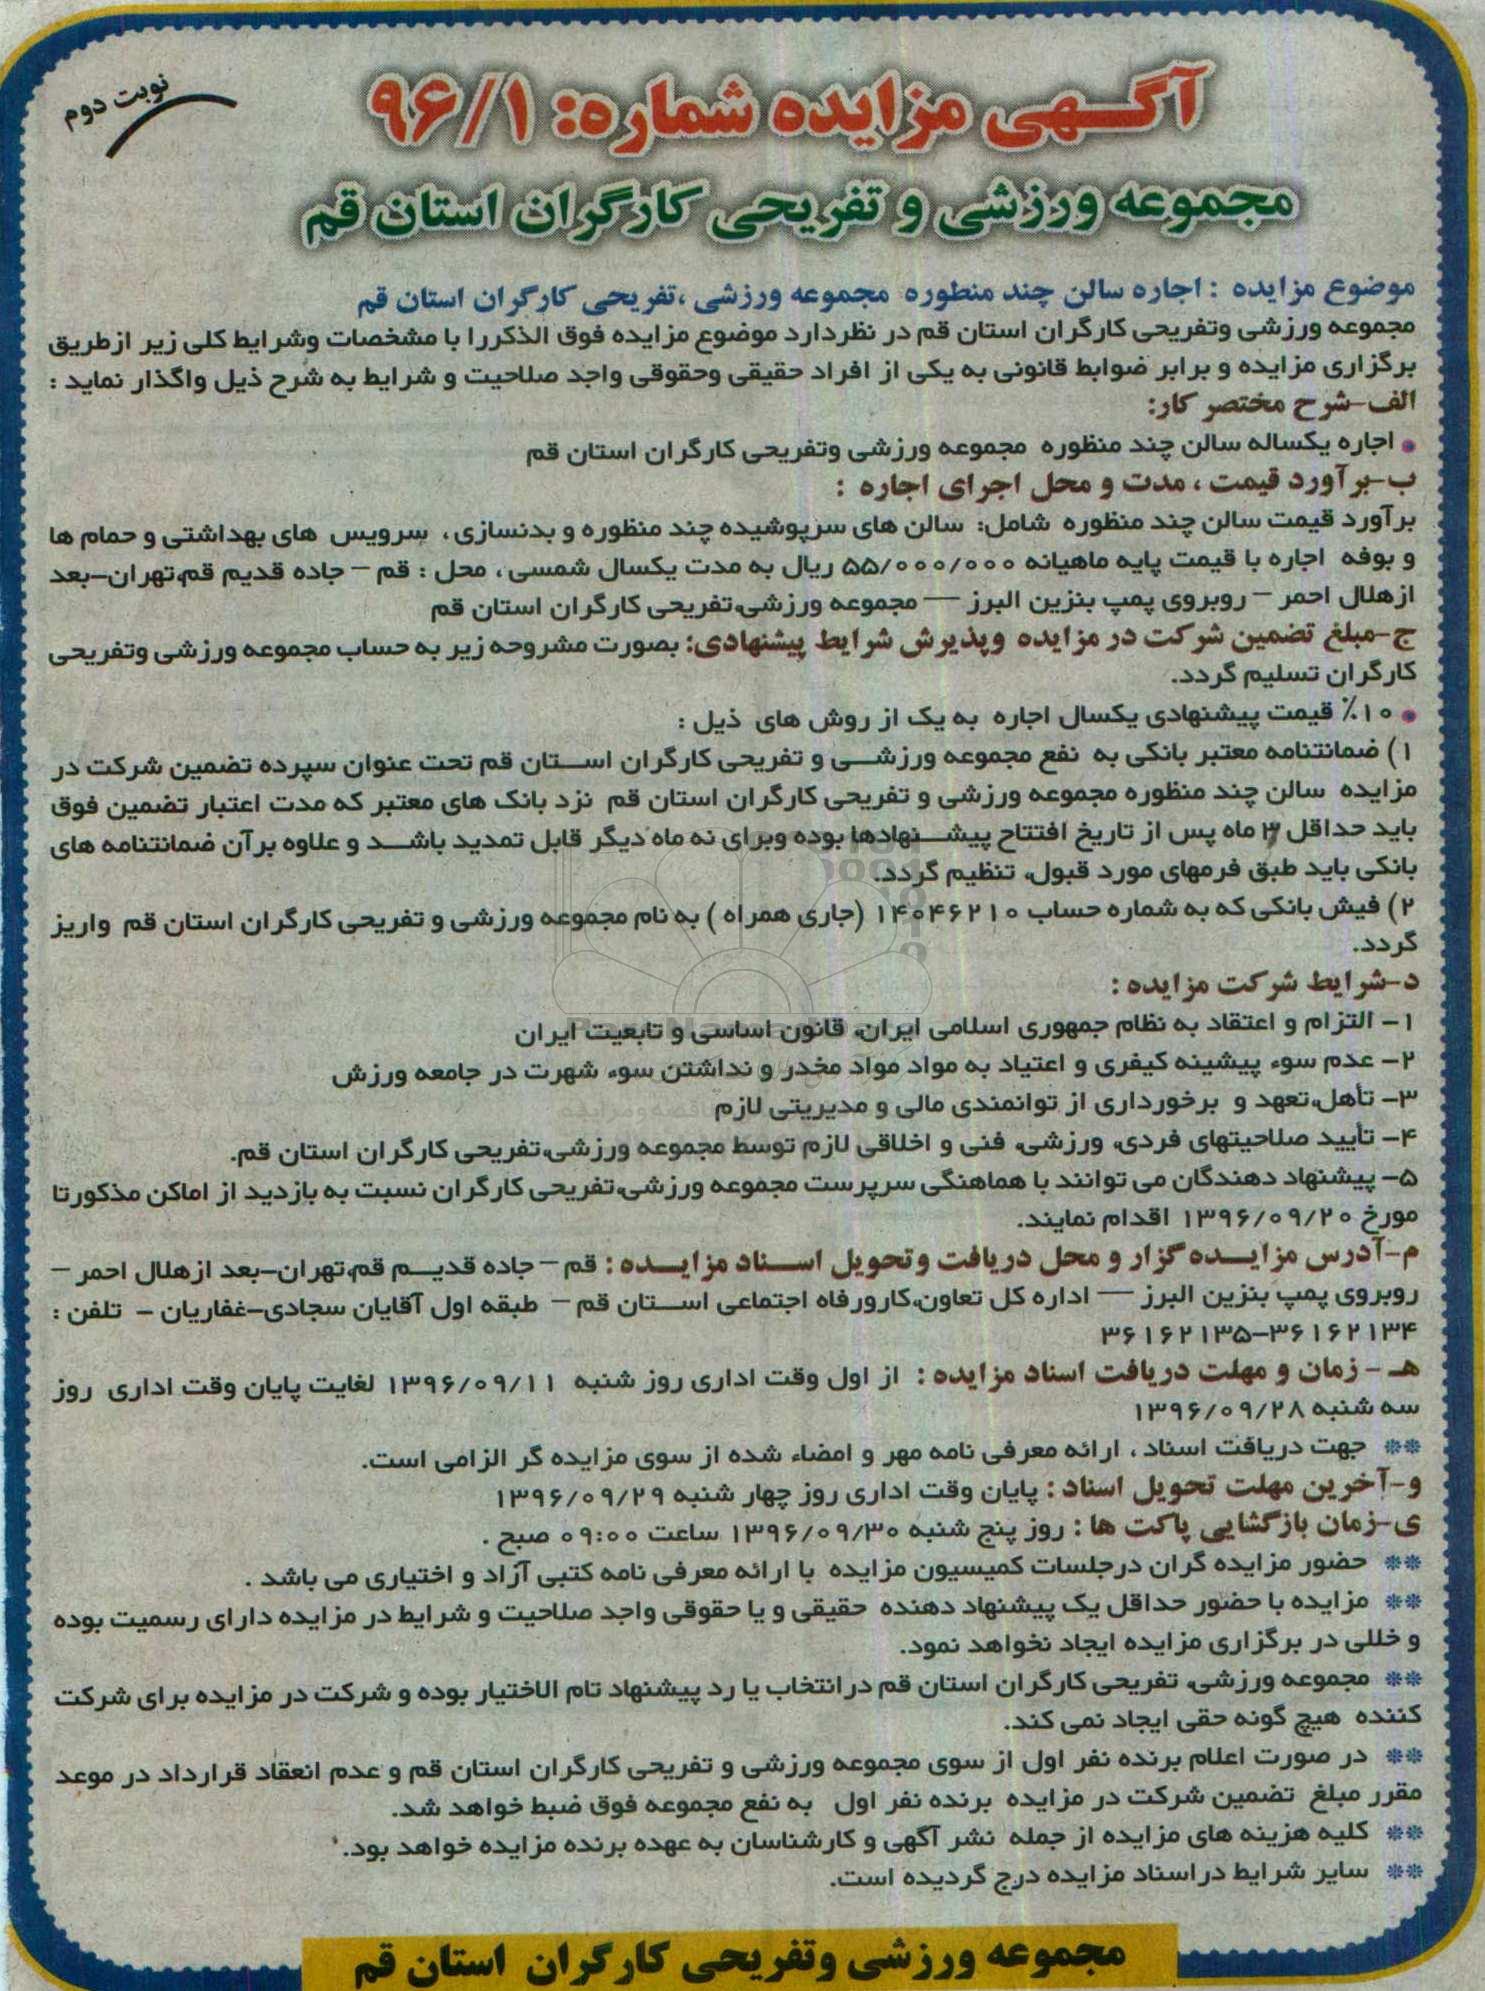 نوبت دوم
آگهی مزایده شماره: ۹۶/۱
مجموعه ورزشی و تفریحی کارگران استان قم
موضوع مزایده : اجاره سالن چند منظوره مجموعه ورزشی ،تفریحی کارگران استان قم
مجموعه ورزشی وتفریحی کارگران استان قم در نظردارد موضوع مزایده فوق الذکررا با مشخصات وشرایط کلی زیر ازطریق
برگزاری مزایده و برابر ضوابط قانونی به یکی از افراد حقیقی وحقوقی واجد صلاحیت و شرایط به شرح ذیل واگذار نماید :
الف-شرح مختصر کار:
• اجاره یکساله سالن چند منظوره مجموعه ورزشی وتفریحی کارگران استان قم
ب-برآورد قیمت ، مدت و محل اجرای اجاره :
برآورد قیمت سالن چند منظوره شامل: سالن های سرپوشیده چند منظوره و بدنسازی ، سرویس های بهداشتی و حمام ها
و بوفه اجاره با قیمت پایه ماهیانه ۵۵/۰۰۰/۰۰۰ ریال به مدت یکسال شمسی ، محل : قم – جاده قدیم قم،تهران–بعد
ازهلال احمر – روبروی پمپ بنزین البرز — مجموعه ورزشی،تفریحی کارگران استان قم
ج-مبلغ تضمین شرکت در مزایده وپذیرش شرایط پیشنهادی: بصورت مشروحه زیر به حساب مجموعه ورزشی وتفریحی
کارگران تسلیم گردد.
• ۱۰٪ قیمت پیشنهادی یکسال اجاره به یک از روش های ذیل :
۱) ضمانتنامه معتبر بانکی به نفع مجموعه ورزشی و تفریحی کارگران استان قم تحت عنوان سپرده تضمین شرکت در
مزایده سالن چند منظوره مجموعه ورزشی و تفریحی کارگران استان قم نزد بانک های معتبر که مدت اعتبار تضمین فوق
باید حداقل ۳ ماه پس از تاریخ افتتاح پیشنهادها بوده وبرای نه ماه دیگر قابل تمدید باشد و علاوه برآن ضمانتنامه های
بانکی باید طبق فرمهای مورد قبول، تنظیم گردد.
۲) فیش بانکی که به شماره حساب ۱۴۰۴۶۲۱۰ (جاری همراه ) به نام مجموعه ورزشی و تفریحی کارگران استان قم واریز
گردد.
د-شرایط شرکت مزایده :
۱– التزام و اعتقاد به نظام جمهوری اسلامی ایران، قانون اساسی و تابعیت ایران
۲– عدم سوء پیشینه کیفری و اعتیاد به مواد مواد مخدر و نداشتن سوء شهرت در جامعه ورزش
۳– تأهل،تعهد و برخورداری از توانمندی مالی و مدیریتی لازم
۴– تأیید صلاحیتهای فردی، ورزشی، فنی و اخلاقی لازم توسط مجموعه ورزشی،تفریحی کارگران استان قم.
۵– پیشنهاد دهندگان می توانند با هماهنگی سرپرست مجموعه ورزشی،تفریحی کارگران نسبت به بازدید از اماکن مذکورتا
مورخ ۱۳۹۶/۰۹/۲۰ اقدام نمایند.
م-آدرس مزایده گزار و محل دریافت وتحویل اسناد مزایده : قم – جاده قدیم قم،تهران–بعد ازهلال احمر –
روبروی پمپ بنزین البرز — اداره کل تعاون،کارورفاه اجتماعی استان قم – طبقه اول آقایان سجادی–غفاریان – تلفن :
۳۶۱۶۲۱۳۴–۳۶۱۶۲۱۳۵
هـ - زمان و مهلت دریافت اسناد مزایده : از اول وقت اداری روز شنبه ۱۳۹۶/۰۹/۱۱ لغایت پایان وقت اداری روز
سه شنبه ۱۳۹۶/۰۹/۲۸
** جهت دریافت اسناد ، ارائه معرفی نامه مهر و امضاء شده از سوی مزایده گر الزامی است.
و-آخرین مهلت تحویل اسناد : پایان وقت اداری روز چهار شنبه ۱۳۹۶/۰۹/۲۹
ی-زمان بازگشایی پاکت ها : روز پنج شنبه ۱۳۹۶/۰۹/۳۰ ساعت ۰۹:۰۰ صبح .
** حضور مزایده گران درجلسات کمیسیون مزایده با ارائه معرفی نامه کتبی آزاد و اختیاری می باشد .
** مزایده با حضور حداقل یک پیشنهاد دهنده حقیقی و یا حقوقی واجد صلاحیت و شرایط در مزایده دارای رسمیت بوده
و خللی در برگزاری مزایده ایجاد نخواهد نمود.
** مجموعه ورزشی، تفریحی کارگران استان قم درانتخاب یا رد پیشنهاد تام الاختیار بوده و شرکت در مزایده برای شرکت
کننده هیچ گونه حقی ایجاد نمی کند.
** در صورت اعلام برنده نفر اول از سوی مجموعه ورزشی و تفریحی کارگران استان قم و عدم انعقاد قرارداد در موعد
مقرر مبلغ تضمین شرکت در مزایده برنده نفر اول به نفع مجموعه فوق ضبط خواهد شد.
** کلیه هزینه های مزایده از جمله نشر آگهی و کارشناسان به عهده برنده مزایده خواهد بود.
** سایر شرایط دراسناد مزایده درج گردیده است.
مجموعه ورزشی وتفریحی کارگران استان قم